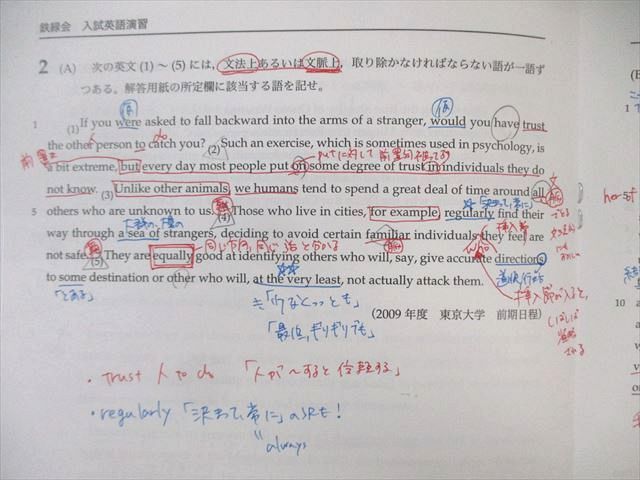 鉄緑会 入試英語演習
2 (A) 次の英文 (1) ~ (5) には，文法上あるいは文脈上，取り除かなければならない語が一語ず
つある。解答用紙の所定欄に該当する語を記せ。
仮 仮
1 (1)If you were asked to fall backward into the arms of a stranger, would you have trust
the other person to catch you? (2)Such an exercise, which is sometimes used in psychology, is
a bit extreme, but every day most people put on some degree of trust in individuals they do
not know. (3)Unlike other animals, we humans tend to spend a great deal of time around all
5 others who are unknown to us. (4)Those who live in cities, for example, regularly find their
way through a sea of strangers, deciding to avoid certain familiar individuals they feel are
not safe. (5)They are equally good at identifying others who will, say, give accurate directions
to some destination or other who will, at the very least, not actually attack them.
「とある」
≒「少なくとも」
「最低，ぎりぎりでも」
(2009 年度 東京大学 前期日程)
・trust 人 to do 「人が～すると信頼する」
・regularly 「決まって，常に」
always
10